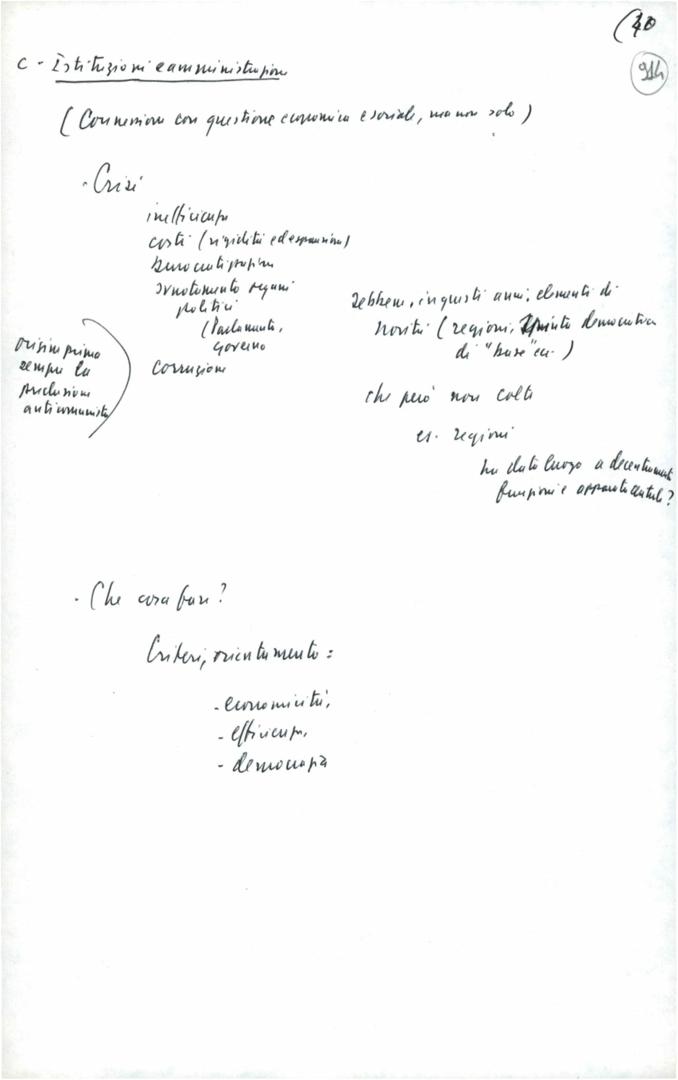 (40
914
C - Istituzioni e amministrazione
(Connessione con questione economica e sociale, ma non solo)
· Crisi
inefficienza
costi (rigidità ed espansione)
burocratizzazione
svuotamento organi
politici
(Parlamento,
Governo
corruzione
origine prima
sempre la
preclusione
anticomunista
Sebbene, in questi anni, elementi di
novità (regioni, spinta democratica
di "base" ecc.)
che però non colti
es. regioni
ha dato luogo a decentramento
funzioni e apparato centrale?
· Che cosa fare?
Criteri, orientamento:
- economicità,
- efficienza,
- democrazia